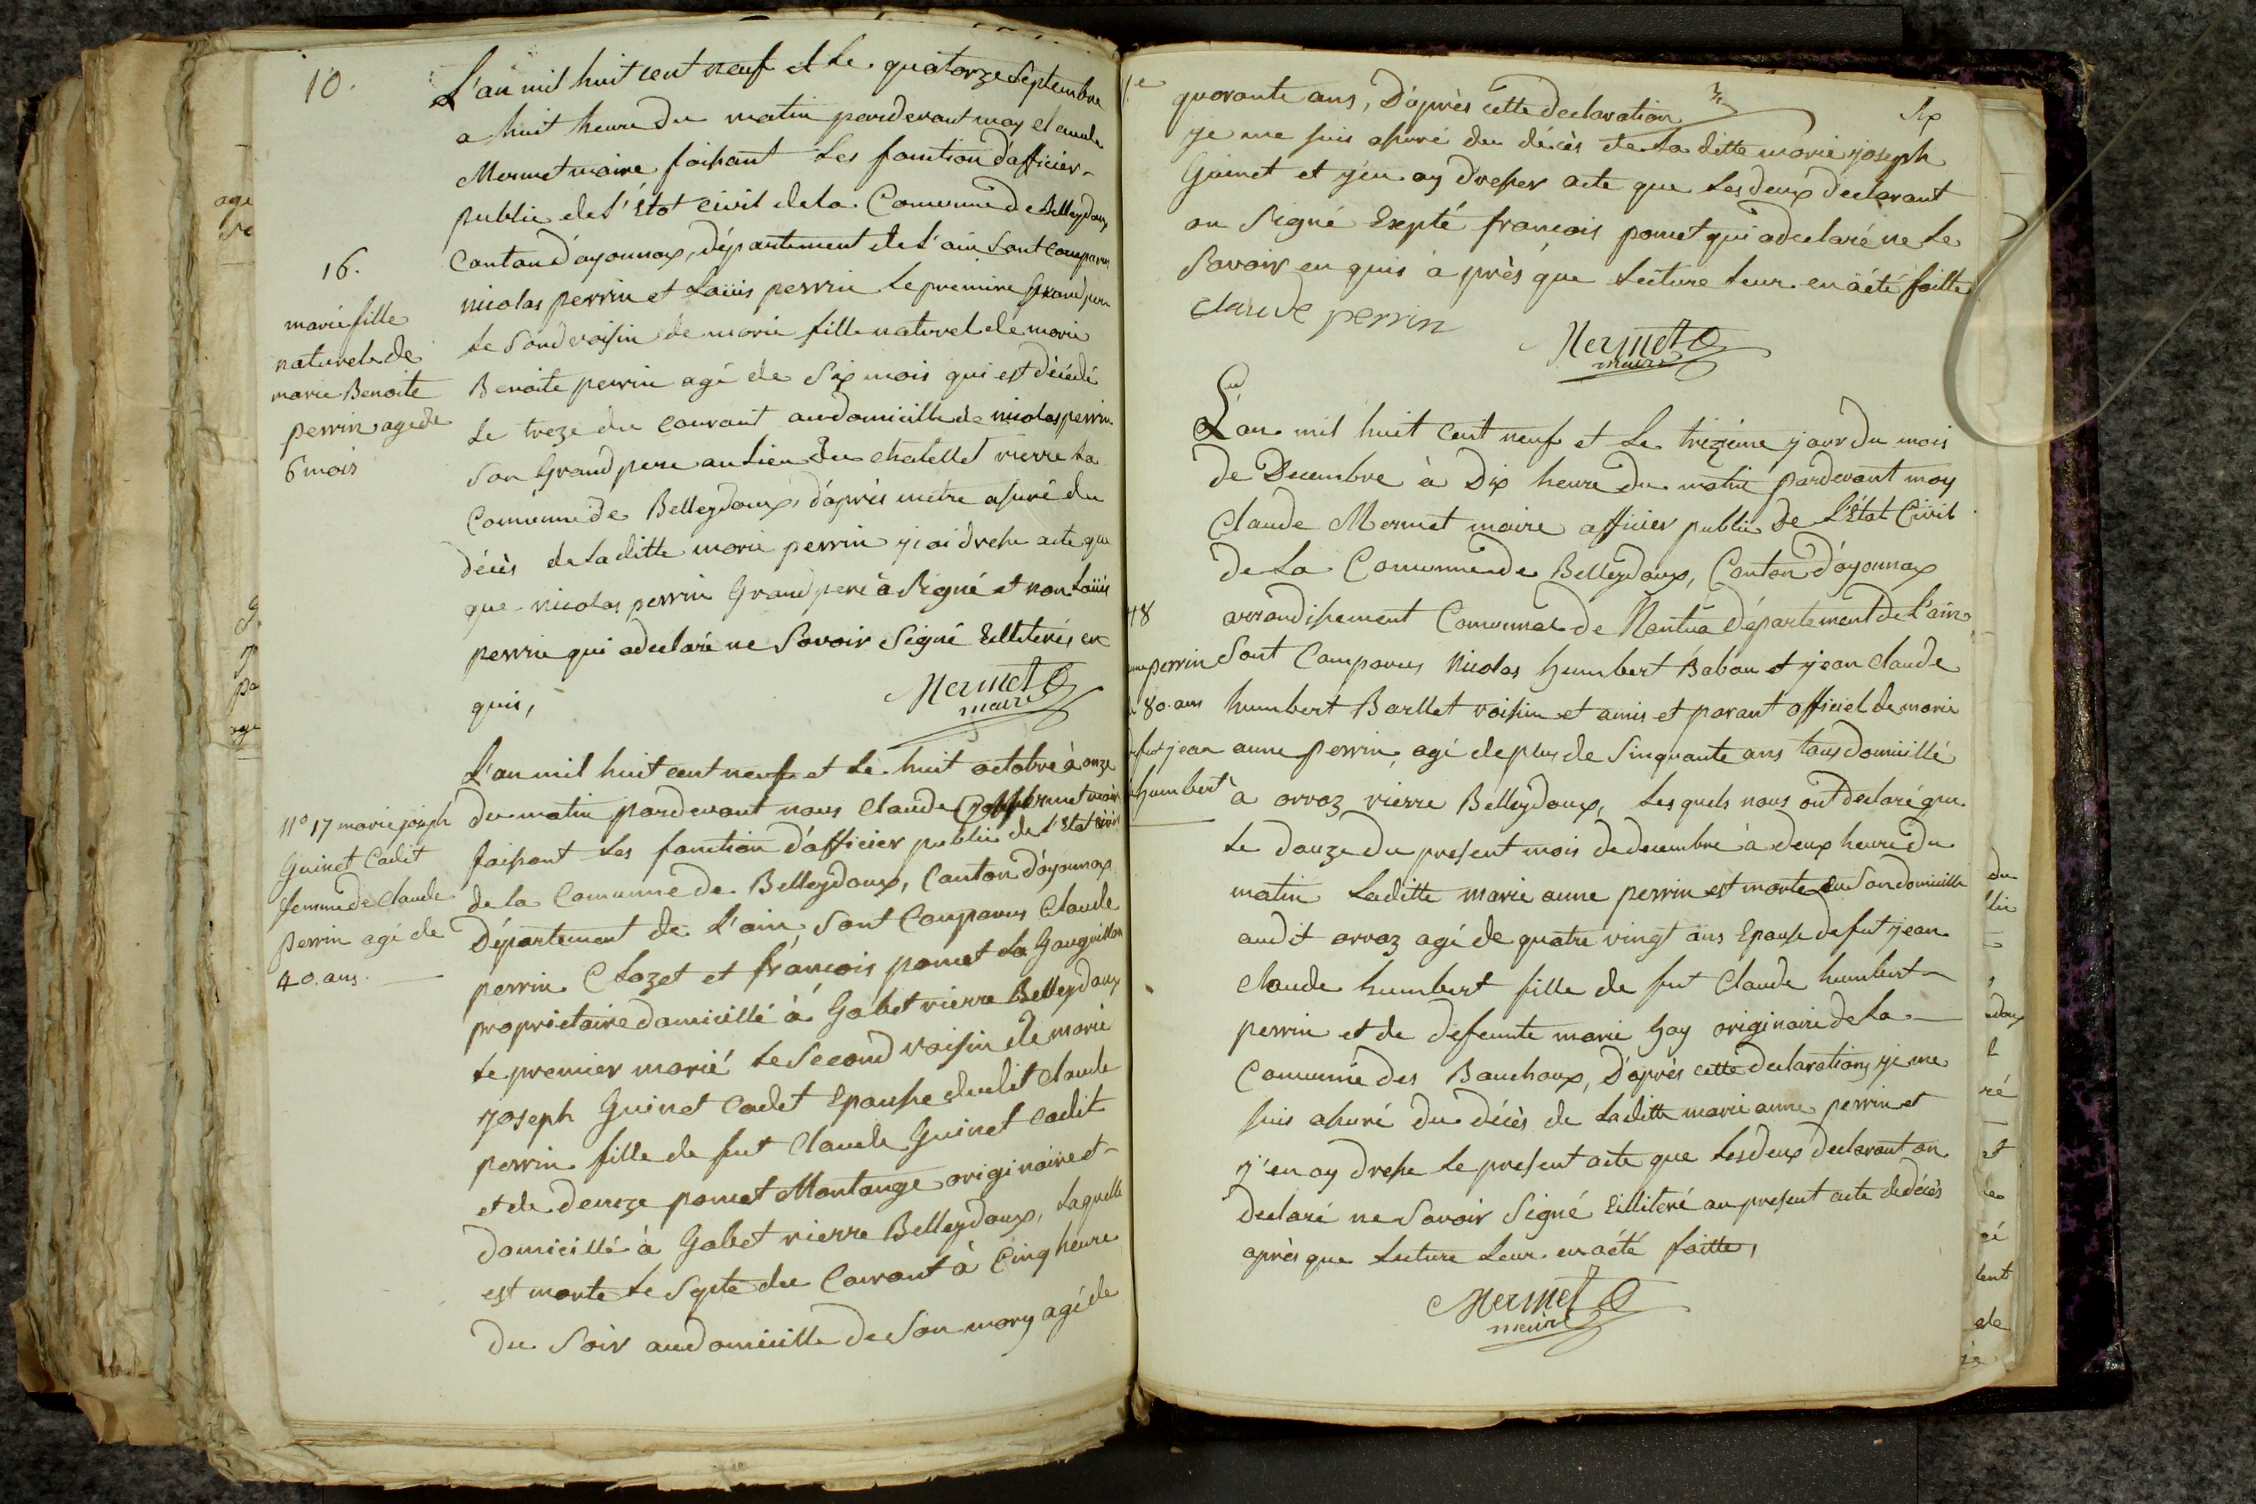 10.
L'an mil huit cent neuf et Le quatorze Septembre
a huit heure du matin pardevant moy Claude
Mermet maire faisant Les fonction d'afficier
public de L'état civil de la Commune de Belleydoux
Canton d'ayonnax, département de L'ain Sont comparus
16.
marie fille
naturele de
marie Benoite
perrin age de
6 mois
nicolas perrin et Louis perrin Le premire Grand pere
Le Sond voisin de marie fille naturel de marie
Benoite perrin agé de Six mois qui est décédé
Le treze du courant au domicille de nicolas perrin
Son Grand pere au Lieu du chatellet rierre La
Commune de Belleydoux, d'après metre asuré du
décès de La ditte marie perrin j'ai dresse acte que
que nicolas perrin Grand pere à Signé et non Louis
perrin qui a declaré ne Savoir Signé Eilliterés en
quis,
Mermet
maire
L'an mil huit cent neuf et Le huit octobre à onze
du matin pardevant nous Claude joseph mermet maire
faisant Les fonction d'afficier public de L'état civil
de la Commune de Belleydoux, Canton d'ayonnax
Département de L'ain, Sont Comparus Claude
n° 17 marie joseph
Guinet Cadet
femme de Claude
perrin agé de
40. ans.
perrin Clozet et françois pomet La Gauguillon
proprietaire domicillé à Gobet rierre Belleydoux
Le premier marié Le Second voisin de marie
joseph Guinet Cadet Epouse dudit Claude
perrin fille de fut Claude Guinet Cadit
et de deneze pomet Montange originaire et
domicillé à Gobet rierre Belleydoux, Laquelle
est morte Le Septe du Courant à Cinq heure
du Soir au domicille de Son mary agé de
Six
quarante ans, D'après cette declaration
je me suis asuré du décès de La ditte marie joseph
Guinet et j'en ay dresser acte que Les deux declarant
on Signé Expté francois pomet qui a declaré ne Le
Savoir en quis à près que Lecture Leur en a été faitte
claude perrin
Mermet
maire
L'an mil huit Cent neuf et Le trizième jour du mois
de Decembre à Dix heure du matin pardevant moy
Claude Mermet maire afficier public De L'état Civil
de La Commune de Belleydoux, Canton d'ayonnax
arrondissement Communal de Nantua Département de L'ain
18
perrin
80. ans
fut jean
humbert
Sont Comparus Nicolas humbert Baban et jean claude
humbert Barllet voisin et amis et parant officiel de marie
anne perrin, agé de plus de Sinquante ans tous domicillé
à orvaz rierre Belleydoux, Les quels nous ont declaré que
Le douze du present mois de decembre à deux heure du
matin Laditte marie anne perrin est morte en Son domicille
audit orvaz agé de quatre vingt ans Epouse de fut jean
claude humbert fille de fut Claude humbert
perrin et de defeunte marie Gay originaire de La
Commune des Bouchoux, D'après cette declaration, je me
suis asuré du décès de Laditte marie anne perrin et
j'en ay dresse Le present acte que Les deux declarant on
declaré ne Savoir Signé Eilliteré au present acte de décès
après que Lecture Leur en a été faitte,
Mermet
maire